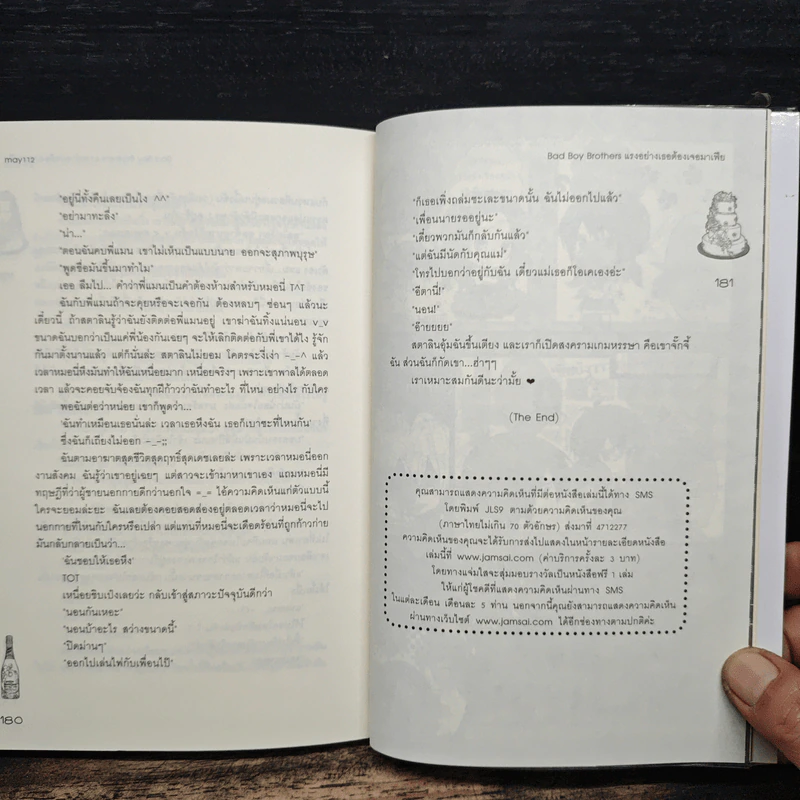 may112
"อยู่นี่ทั้งคืนเลยเป็นไง ^^"
"อย่ามาทะลึ่ง"
"น่า..."
"ตอนฉันคบพี่แมน เขาไม่เห็นเป็นแบบนาย ออกจะสุภาพบุรุษ"
"พูดชื่อมันขึ้นมาทำไม"
เออ ลืมไป... คำว่าพี่แมนเป็นคำต้องห้ามสำหรับหมอนี่ T^T
ฉันกับพี่แมนถ้าจะคุยหรือจะเจอกัน ต้องหลบๆ ซ่อนๆ แล้วนะ
เดี๋ยวนี้ ถ้าสตาลินรู้ว่าฉันยังติดต่อพี่แมนอยู่ เขาฆ่าฉันทิ้งแน่นอน v_v
ขนาดฉันบอกว่าเป็นแค่พี่น้องกันเฉยๆ จะให้เลิกติดต่อกับพี่เขาได้ไง รู้จัก
กันมาตั้งนานแล้ว แต่ก็นั่นล่ะ สตาลินไม่ยอม โคตรจะงี่เง่า -_-^ แล้ว
เวลาหมอนี่หึงมันทำให้ฉันเหนื่อยมาก เหนื่อยจริงๆ เพราะเขาพาลได้ตลอด
เวลา แล้วจะคอยจับจ้องฉันทุกฝีก้าวว่าฉันทำอะไร ที่ไหน อย่างไร กับใคร
พอฉันต่อว่าหน่อย เขาก็พูดว่า...
'ฉันทำเหมือนเธอนั่นล่ะ เวลาเธอหึงฉัน เธอก็เบาซะที่ไหนกัน'
ซึ่งฉันก็เถียงไม่ออก -_-;;
ฉันตามอาฆาตสุดชีวิตสุดฤทธิ์สุดเดชเลยล่ะ เพราะเวลาหมอนี่ออก
งานสังคม ฉันรู้ว่าเขาอยู่เฉยๆ แต่สาวจะเข้ามาหาเขาเอง แถมหมอนี่มี
ทฤษฎีที่ว่าผู้ชายนอกกายดีกว่านอกใจ =_= ไอ้ความคิดเห็นแก่ตัวแบบนี้
ใครจะยอมล่ะยะ ฉันเลยต้องคอยสอดส่องอยู่ตลอดเวลาว่าหมอนี่จะไป
นอกกายที่ไหนกับใครหรือเปล่า แต่แทนที่หมอนี่จะเดือดร้อนที่ถูกก้าวก่าย
มันกลับกลายเป็นว่า...
'ฉันชอบให้เธอหึง'
TOT
เหนื่อยชิบเป๋งเลยว่ะ กลับเข้าสู่สภาวะปัจจุบันดีกว่า
"นอนกันเหอะ"
"นอนบ้าอะไร สว่างขนาดนี้"
"ปิดม่านๆ"
"ออกไปเล่นไพ่กับเพื่อนไป๊"
180
Bad Boy Brothers แรงอย่างเธอต้องเจอมาเฟีย
"ก็เธอเพิ่งถล่มซะเละขนาดนั้น ฉันไม่ออกไปแล้ว"
"เพื่อนนายรออยู่นะ"
"เดี๋ยวพวกมันก็กลับกันแล้ว"
"แต่ฉันมีนัดกับคุณแม่"
"โทรไปบอกว่าอยู่กับฉัน เดี๋ยวแม่เธอก็โอเคเองอ่ะ"
"อีตานี่!"
"นอน!"
"อ๊ายยยย"
สตาลินอุ้มฉันขึ้นเตียง และเราก็เปิดสงครามเกมหรรษา คือเขาจั๊กจี้
ฉัน ส่วนฉันก็กัดเขา...ฮ่าๆๆ
เราเหมาะสมกันดีนะว่ามั้ย ❤
(The End)
181
คุณสามารถแสดงความคิดเห็นที่มีต่อหนังสือเล่มนี้ได้ทาง SMS
โดยพิมพ์ JLS9 ตามด้วยความคิดเห็นของคุณ
(ภาษาไทยไม่เกิน 70 ตัวอักษร) ส่งมาที่ 4712277
ความคิดเห็นของคุณจะได้รับการส่งไปแสดงในหน้ารายละเอียดหนังสือ
เล่มนี้ที่ www.jamsai.com (ค่าบริการครั้งละ 3 บาท)
โดยทางแจ่มใสจะสุ่มมอบรางวัลเป็นหนังสือฟรี 1 เล่ม
ให้แก่ผู้โชคดีที่แสดงความคิดเห็นผ่านทาง SMS
ในแต่ละเดือน เดือนละ 5 ท่าน นอกจากนี้คุณยังสามารถแสดงความคิดเห็น
ผ่านทางเว็บไซต์ www.jamsai.com ได้อีกช่องทางตามปกติค่ะ